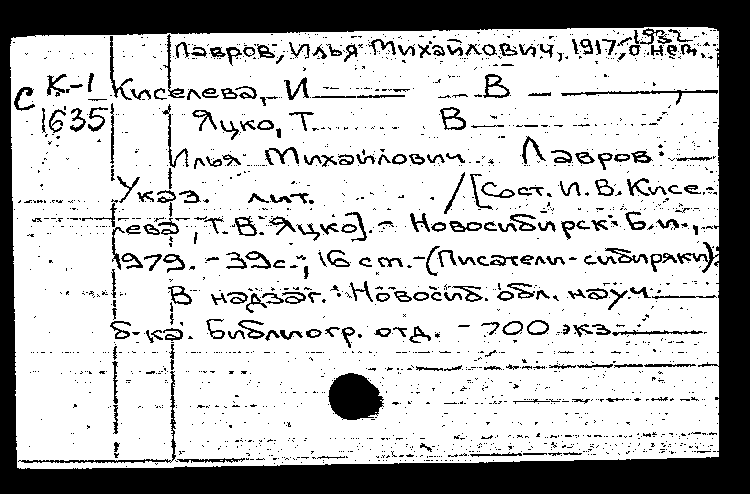 1932
Лавров, Илья Михайлович, 1917, о нем.
С К-1 Киселева, И В ,
1635 Яцко, Т. В
Илья Михайлович Лавров:
Указ. лит. / [Сост. И. В. Кисе-
лева, Т. В. Яцко]. - Новосибирск: Б. и.,
1979. - 39 с.; 16 см. - (Писатели-сибиряки).
В надзаг.: Новосиб. обл. науч.
б-ка. Библиогр. отд. - 700 экз.